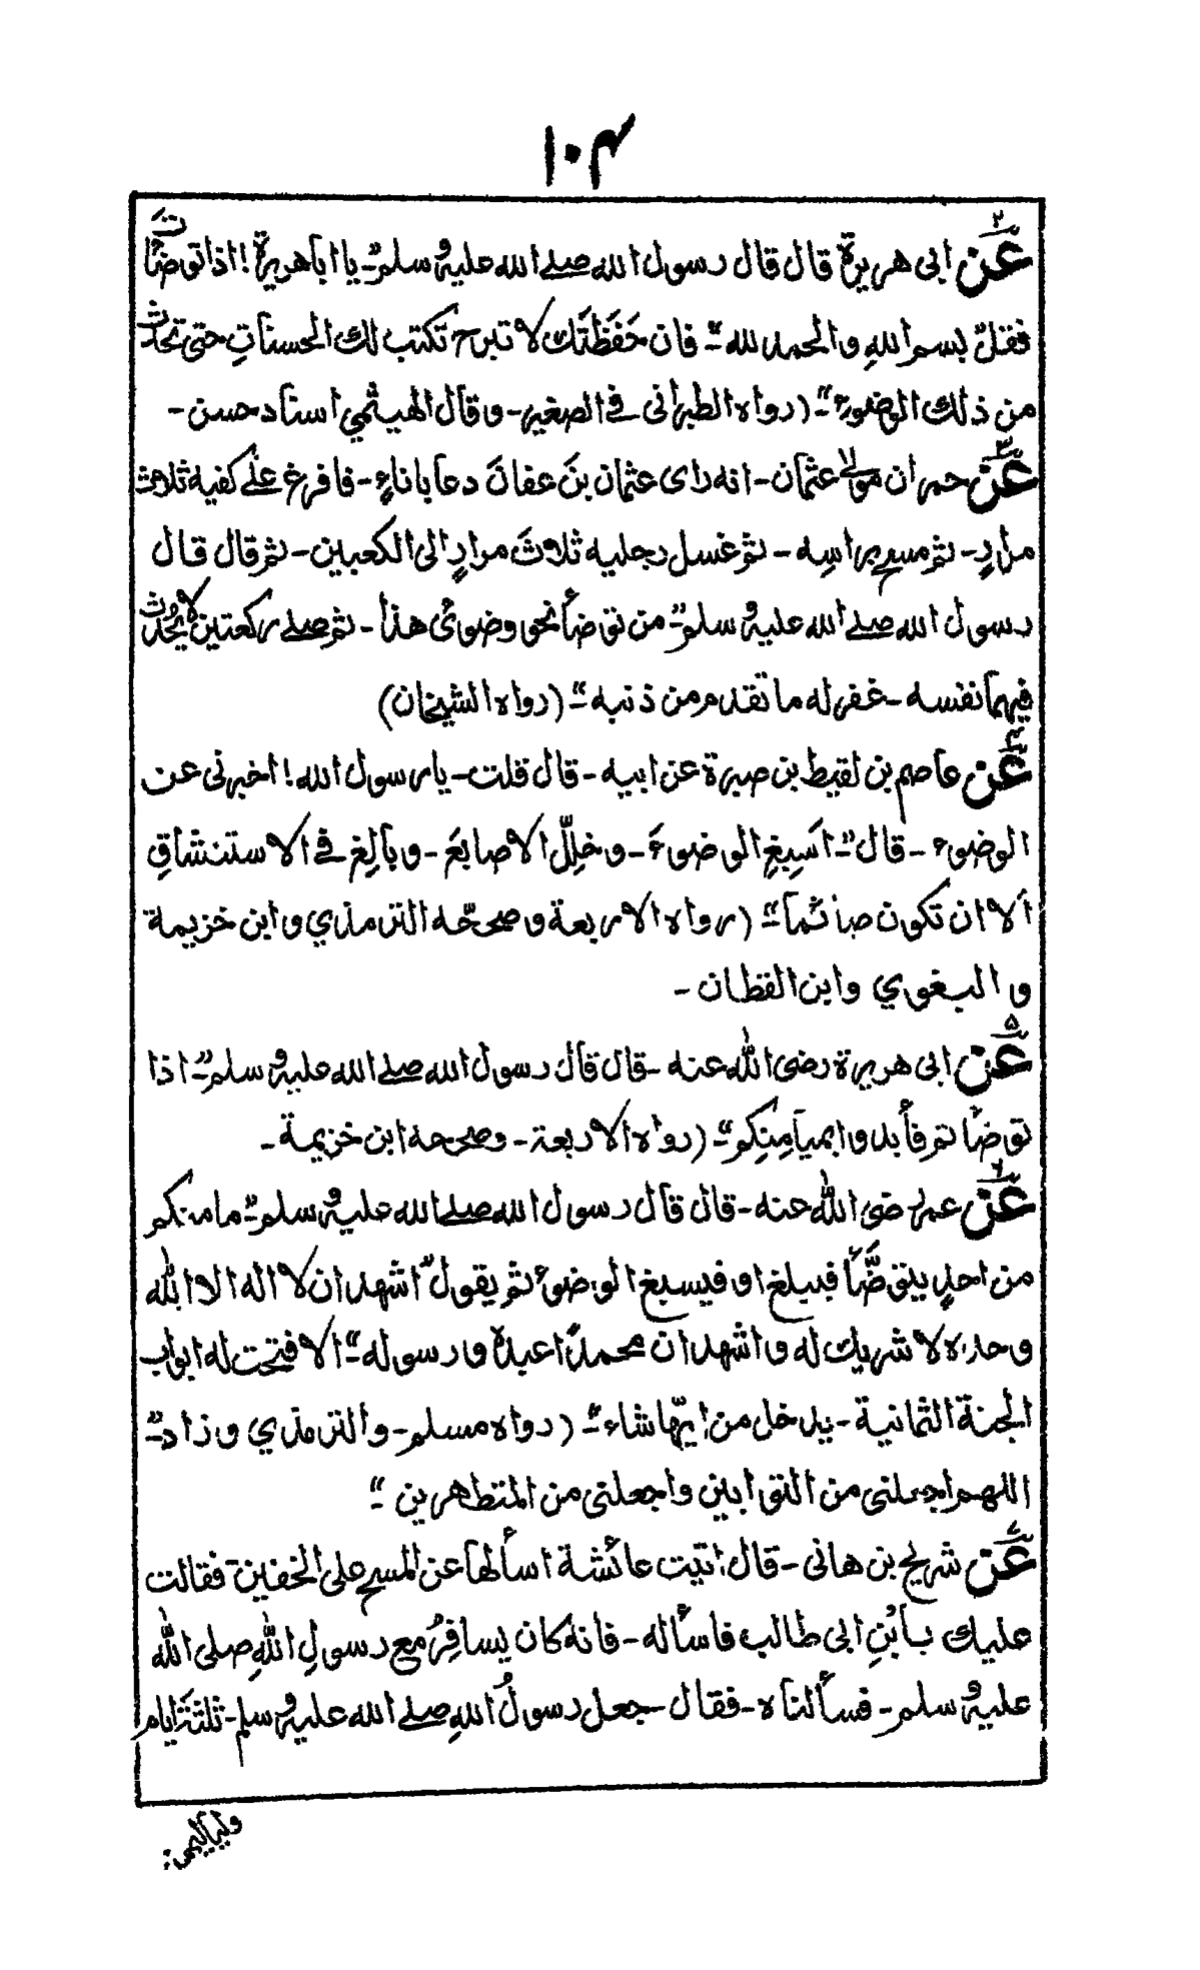 ۱۰۴
۲
عَن ابی هریرة قال قال رسول الله صلے الله علیه وسلم ”۔ یا ابا هریرة! اذا توضأتَ
فقل بسم اللهِ والحمد لله “۔ فان حَفَظَتَك لا تبرح تکتب لك الحسناتِ حتی تحدث
من ذلك الوضوء “۔ (رواه الطبرانی فی الصغیر۔ وقال الهیثمي اسناد حسن۔
۳
عَن حمران مولیٰ عثمان۔ انه رای عثمان بنَ عفانَ دعا باناءٍ۔ فافرغ علٰی کفیه ثلاث
مرارٍ۔ ثم مسح براسِه ۔ ثم غسل رجلیه ثلاثَ مرارٍ الی الکعبین۔ ثم قال قال
رسول الله صلے الله علیه وسلم ”۔ من توضأ نحو وضوئی هذا۔ ثم صلے رکعتین لا یُحدِّث
فیهما نفسه ۔ غفر له ما تقدم من ذنبه “۔ (رواه الشیخان)
۴
عَن عاصم بن لقیط بن صبرة عن ابیه ۔ قال قلت۔ یا رسول الله! اخبرنی عن
الوضوء ۔ قال ”۔ اَسبِغِ الوضوءَ ۔ وخلِّلِ الاصابعَ ۔ وبالِغ فی الاستنشاقِ
الا ان تکون صائماً “۔ (رواه الاربعة وصححّه الترمذي وابن خزیمة
والبغوي وابن القطان ۔
۵
عَن ابی هریرة رضی الله عنه ۔ قال قال رسول الله صلے الله علیه وسلم ”۔ اذا
توضأتم فابدوا بمیامِنِکم “۔ (رواه الاربعة ۔ وصححه ابن خزیمة ۔
۶
عَن عمر رضی الله عنه ۔ قال قال رسول الله صلے الله علیه وسلم ”۔ ما منکم
من احدٍ یتوضَّأ فیبلغ او فیسبغ الوضوءَ ثم یقول ”اشهد ان لا اله الا الله
وحده لا شریك له واشهد ان محمداً عبدهٗ ورسوله “۔ الا فتحت له ابواب
الجنة الثمانیة ۔ یدخل من ایّها شاء “۔ (رواه مسلم۔ والترمذي وزاد ”۔
اللهم اجعلنی من التوابین واجعلنی من المتطهرین “۔
۷
عَن شریح بن هانی ۔ قال اتیت عائشة اسألها عن المسح علی الخفین فقالت
علیك بابنِ ابی طالب فاسأله ۔ فانه کان یسافِرُ مع رسولِ اللهِ صلی الله
علیه وسلم ۔ فسألناه ۔ فقال ۔ جعل رسولُ اللهِ صلے الله علیه وسلم ۔ ثلثةَ ایام
ولیالیهن؛